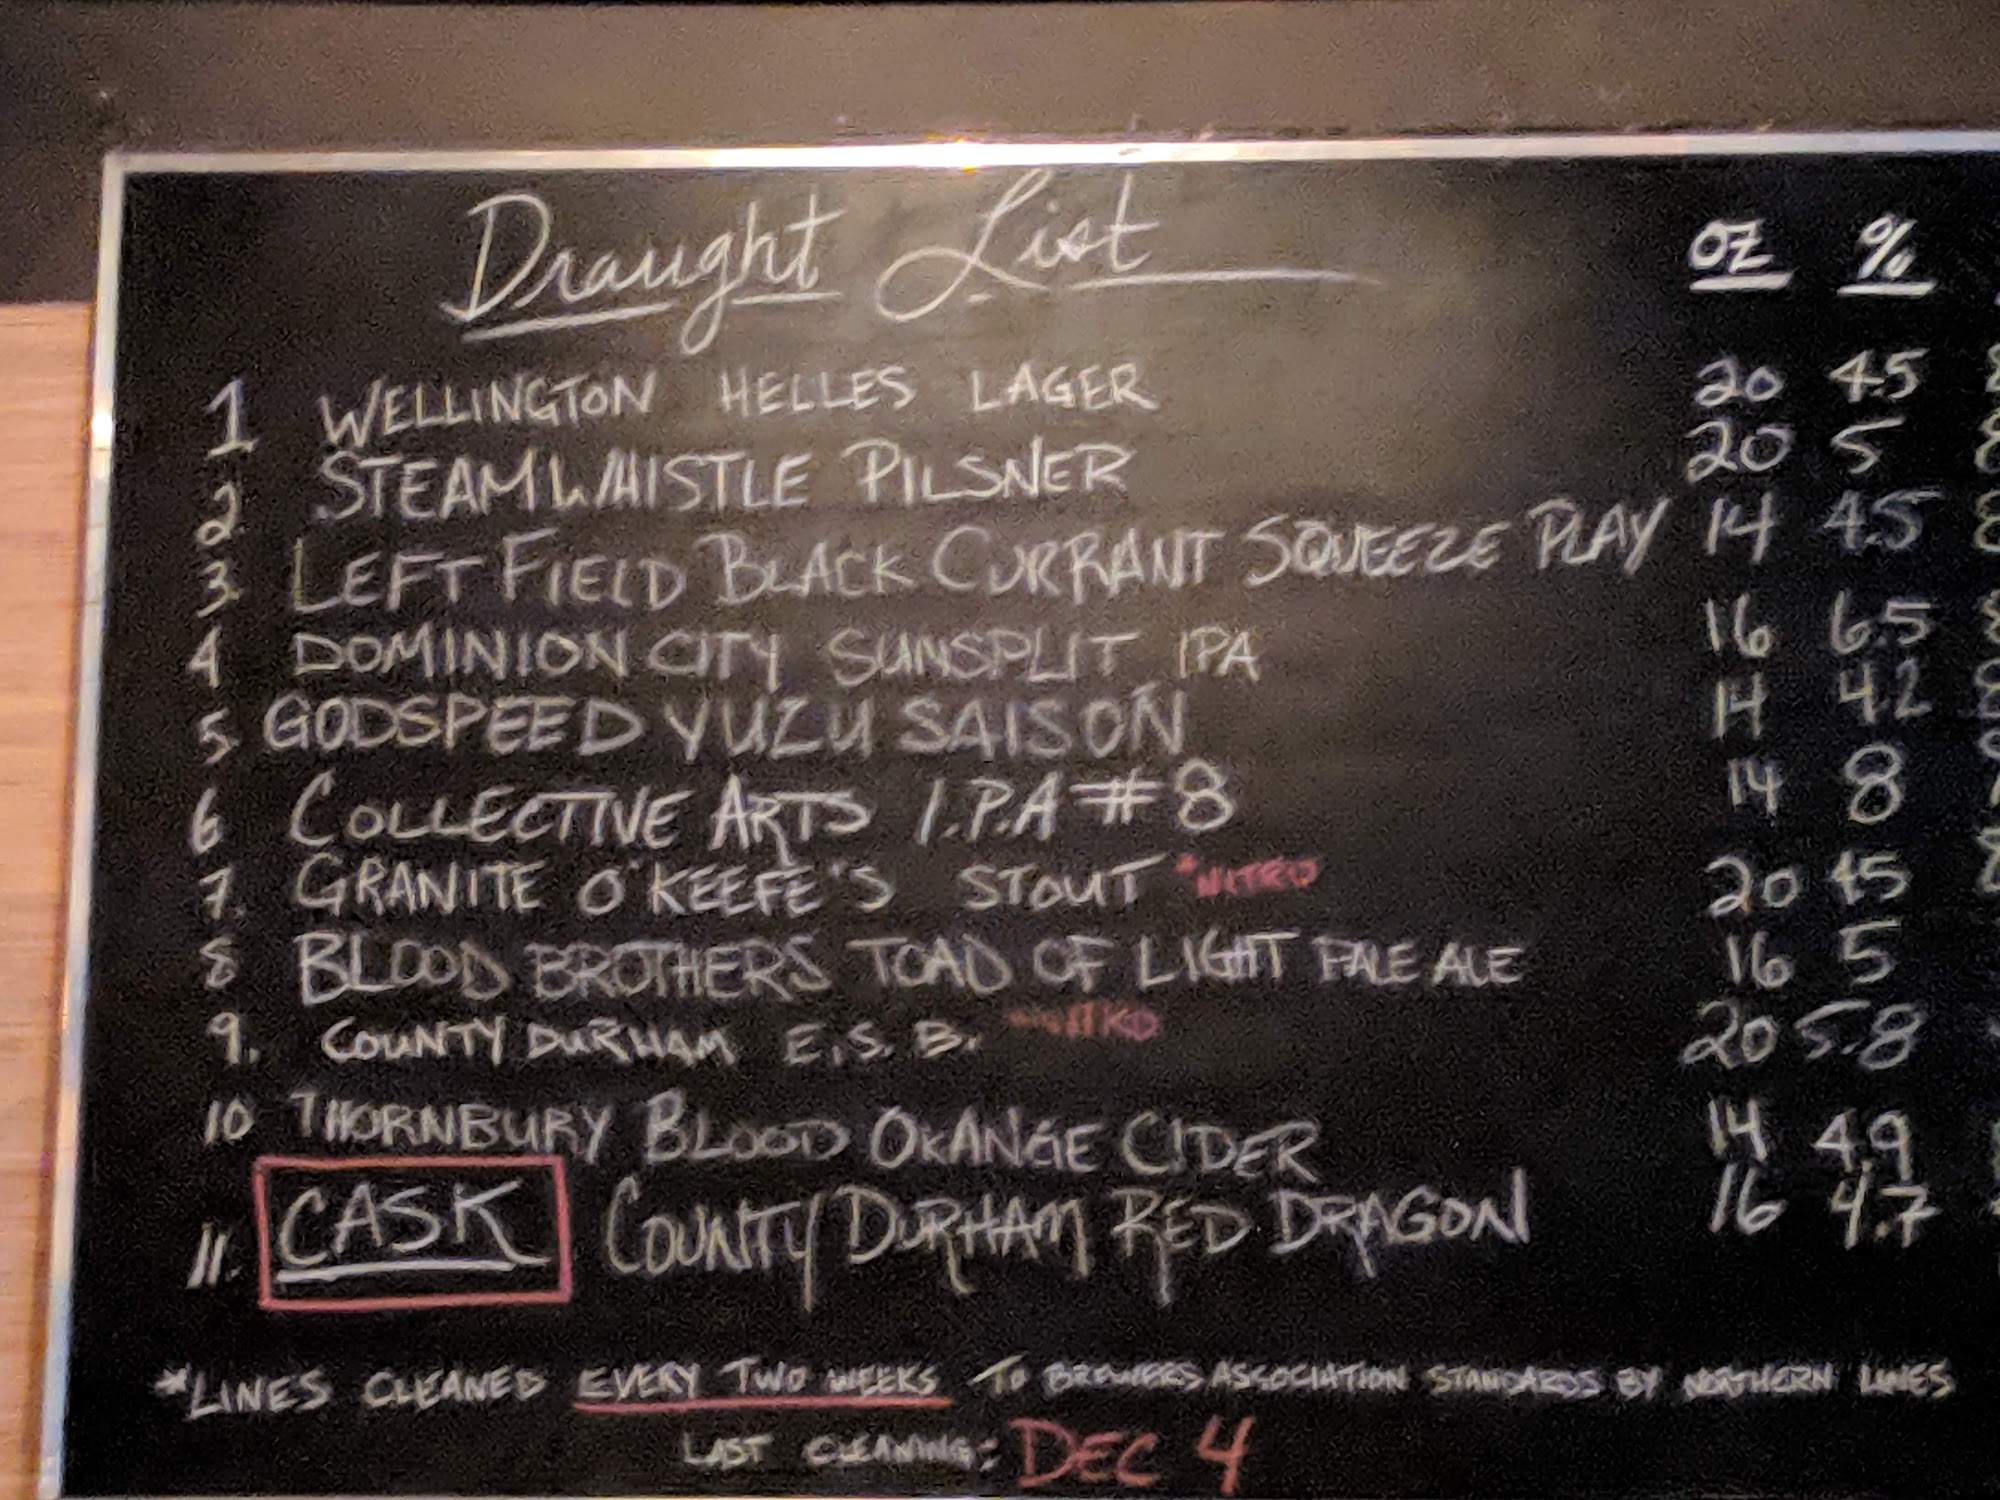 Draught List OZ %
1 WELLINGTON HELLES LAGER 20 4.5
2 STEAMWHISTLE PILSNER 20 5
3 LEFT FIELD BLACK CURRANT SQUEEZE PLAY 14 4.5
4 DOMINION CITY SUNSPLIT IPA 16 6.5
5 GODSPEED YUZU SAISON 14 4.2
6 COLLECTIVE ARTS I.P.A #8 14 8
7. GRANITE O'KEEFE'S STOUT *NITRO 20 4.5
8 BLOOD BROTHERS TOAD OF LIGHT PALE ALE 16 5
9. COUNTY DURHAM E.S.B. 20 5.8
10 THORNBURY BLOOD ORANGE CIDER 14 4.9
11. CASK COUNTY DURHAM RED DRAGON 16 4.7
*LINES CLEANED EVERY TWO WEEKS TO BREWERS ASSOCIATION STANDARDS BY NORTHERN LINES
LAST CLEANING: DEC 4